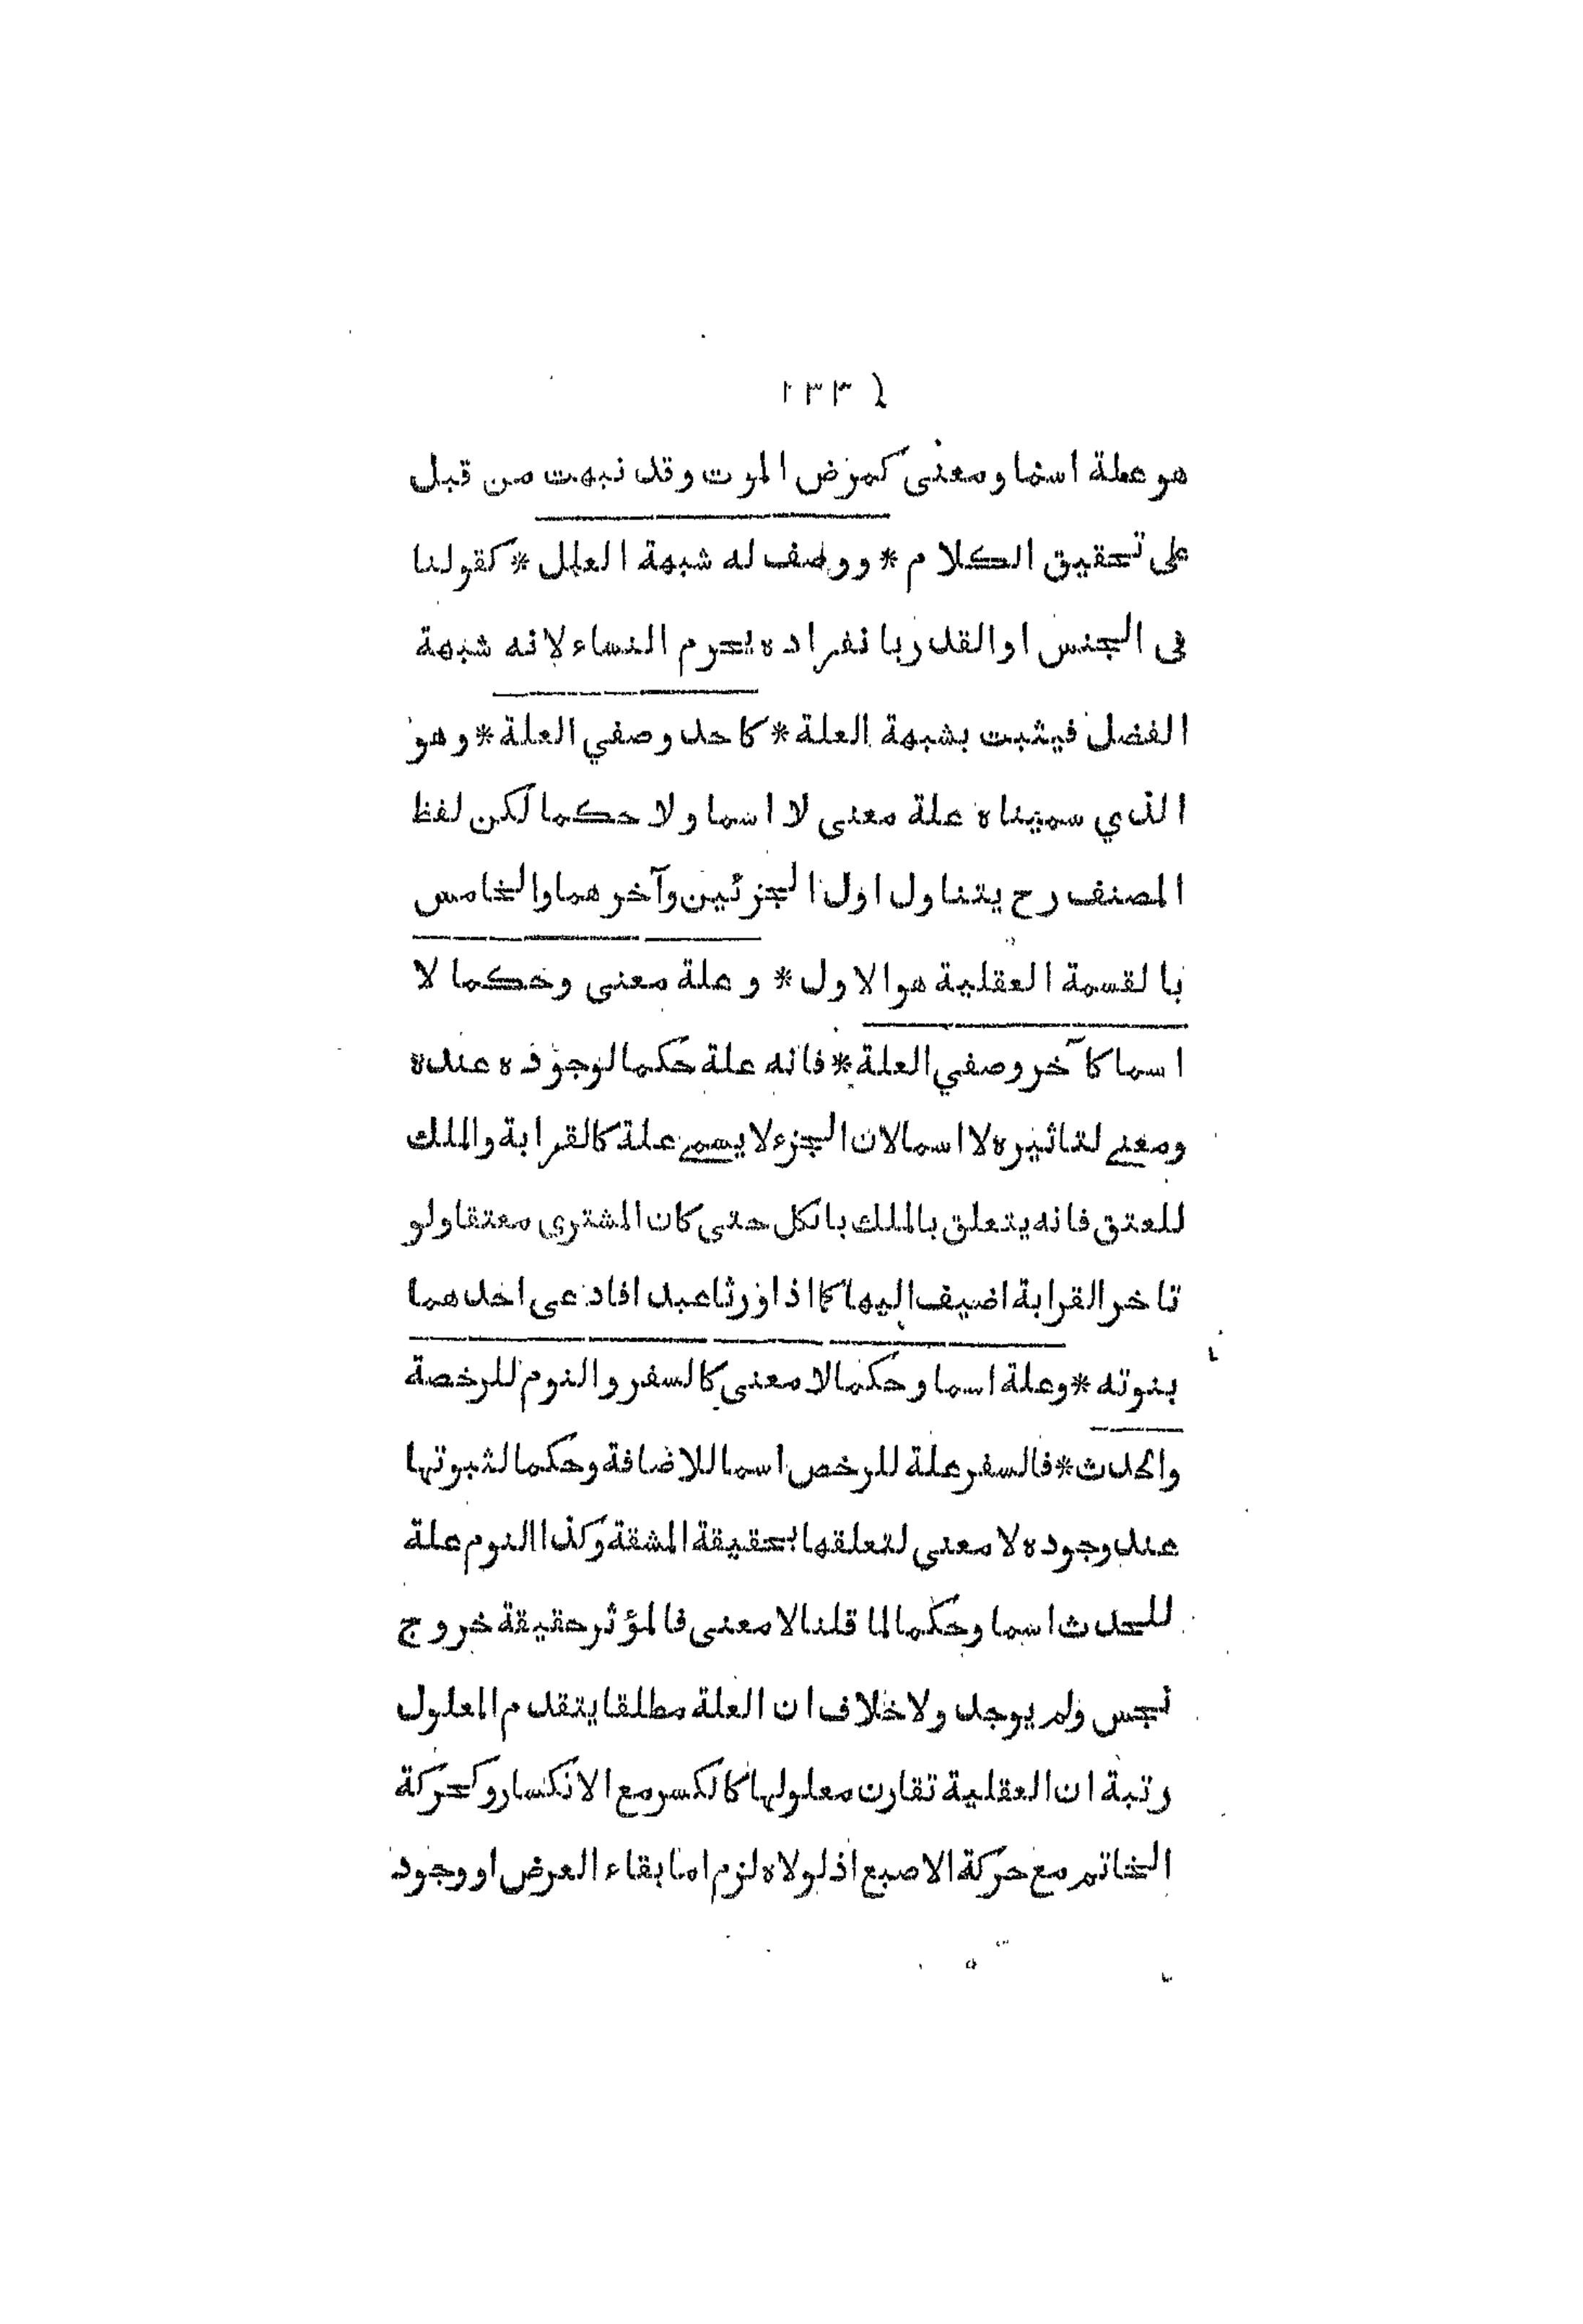 هو علة اسما ومعنى كمرض الموت وقد نبهت من قبل
على تحقيق الكلام * ووصف له شبهة العلل * كقولنا
فى الجنس او القدر بانفراده يحرم النساء لانه شبهة
الفضل فيثبت بشبهة العلة * كاحد وصفي العلة * وهو
الذي سميناه علة معنى لا اسما ولا حكما لكن لفظ
المصنف رح يتناول اول الجزئين وآخرهما والخامس
بالقسمة العقلية هو الاول * وعلة معنى وحكما لا
اسما كآخر وصفي العلة * فانه علة حكما لوجوده عنده
ومعنى لتاثيره لا اسما لان الجزء لا يسمى علة كالقرابة والملك
للعتق فانه يتعلق بالملك بالكل حتى كان المشترى معتقا ولو
تاخر القرابة اضيف اليها كما اذا ورثا عبدا فادعى احدهما
بنوته * وعلة اسما وحكما لا معنى كالسفر والنوم للرخصة
والحدث * فالسفر علة للرخص اسما للاضافة وحكما لثبوتها
عند وجوده لا معنى لتعلقها بحقيقة المشقة وكذا النوم علة
للحدث اسما وحكما لما قلنا لا معنى فالمؤثر حقيقة خروج
نجس ولم يوجد ولا خلاف ان العلة مطلقا يتقدم المعلول
رتبة ان العقلية تقارن معلولها كالكسر مع الانكسار وكحركة
الخاتم مع حركة الاصبع اذ لولاه لزم اما بقاء العرض او وجود